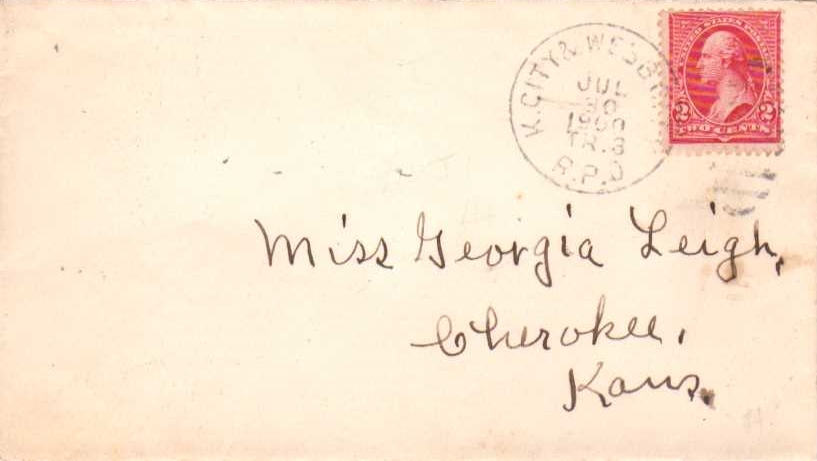 K.CITY & WEBB
JUL
TR.3
R.P.O
UNITED STATES POSTAGE
2 2
TWO CENTS
Miss Georgia Leigh,
Cherokee,
Kans.